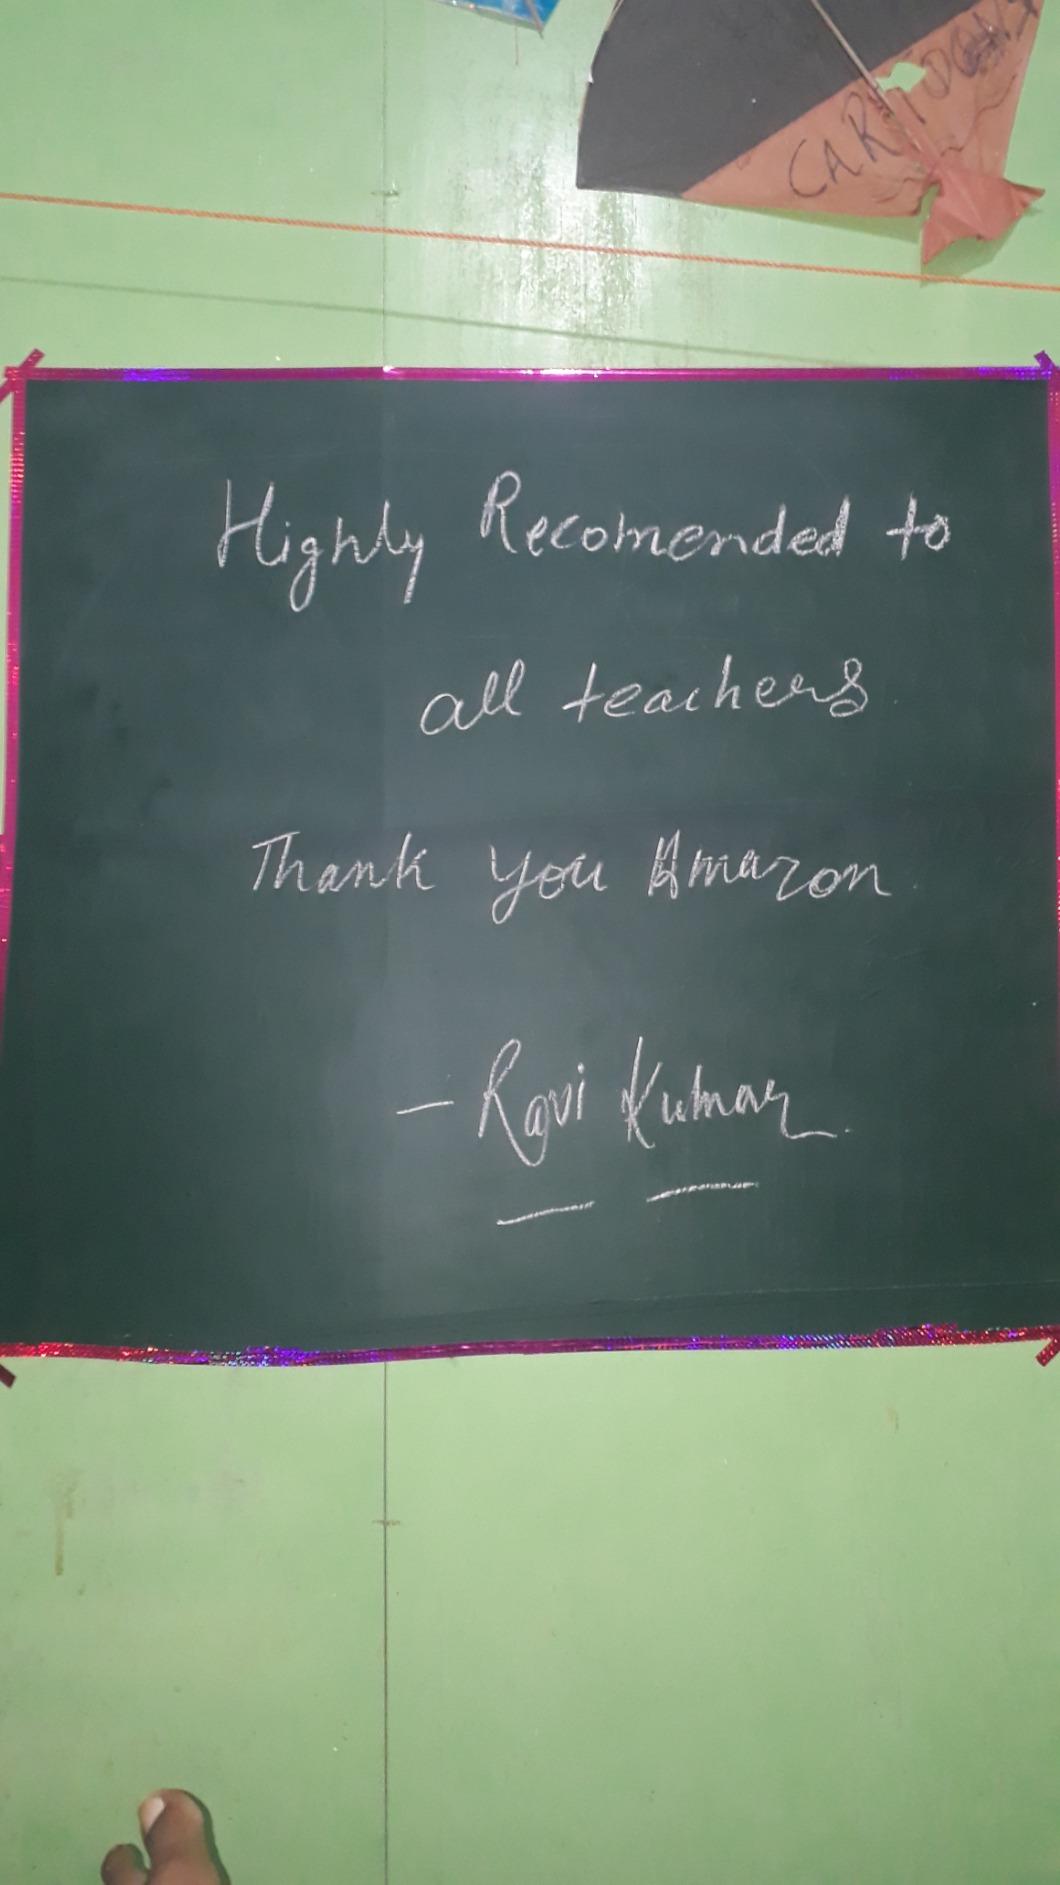 Highly Recomended to
all teachers
Thank you Amazon
- Ravi Kumar